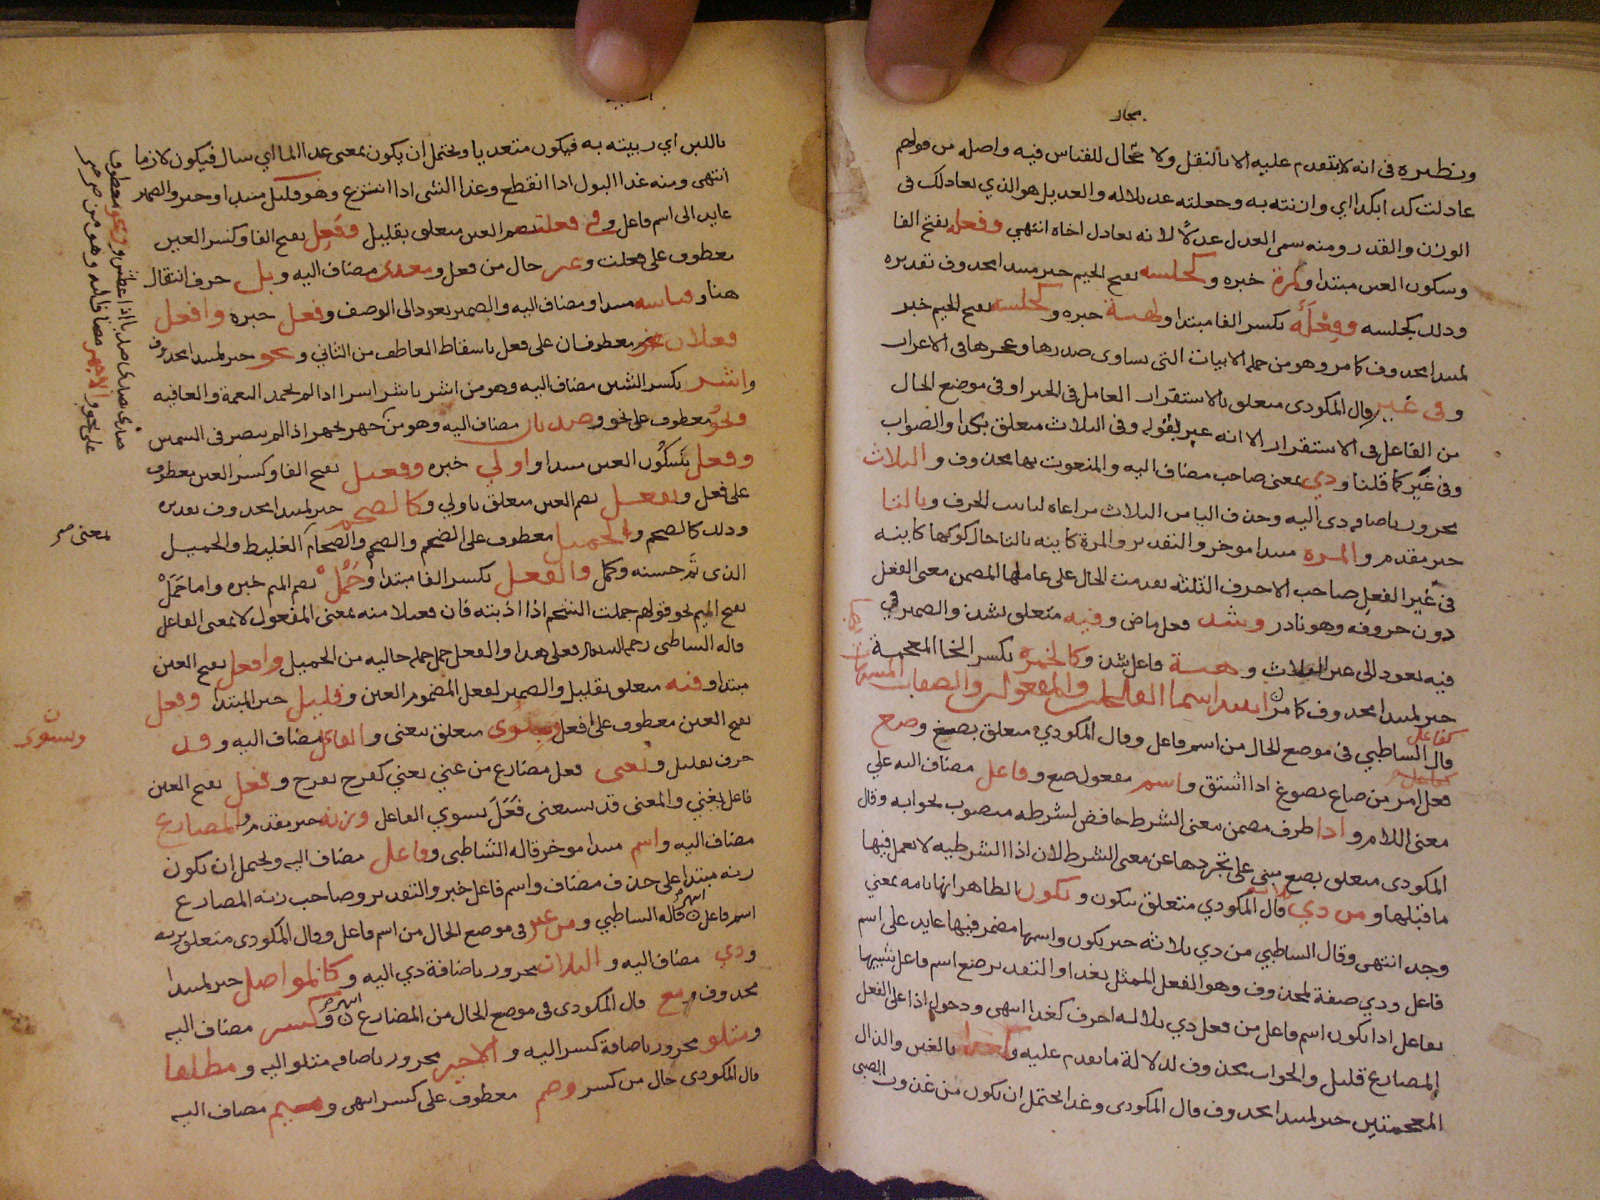 ونظيره في انه لا يتقدم عليه الا بالنقل ولا مجال للقياس فيه واصله من قولهم
عادلت كذا بكذا اي وازنته به وجعلته عدلا له والعديل هو الذي يعادلك في
الوزن والقدر ومنه سمي العدل عدلا لانه يعادل اخاه انتهي وفعلة بفتح الفا
وسكون العين مبتدا ومرة خبره وكجلسه بفتح الجيم خبر مبتدا محذوف تقديره
وذلك كجلسه وفِعْلَة بكسر الفا مبتدا ولهيئة خبره وكجلسه بفتح الجيم خبر
لمبتدا محذوف كامر وهو من جملة الابيات التي يساوي صدرها وعجزها في الاعراب
وفي غير قال المكودي متعلق بالاستقرار العامل في الخبر او في موضع الحال
من الفاعل في الاستقرار الا انه عبر بقوله وفي الثلاث متعلق بكذا والصواب
وفي غير كما قلنا وذي بمعنى صاحب مضاف اليه والمنعوت بها محذوف والثلاث
مجرور باضافة ذي اليه وحذف اليا من الثلاث مراعاة لتانيث الحرف وبالتا
خبر مقدم والمره مبتدا موخر والتقدير والمرة كاينه بالتا حال كونها كاينه
في غير الفعل صاحب الاحرف الثلثه تقدمت الحال على عاملها المضمن معنى الفعل
دون حروفه وهو نادر وشذ فعل ماض وفيه متعلق بشذ والضمير في
فيه يعود الى غير الثلاث وهيئة فاعل شذ وكالخمره بكسر الخا المعجمة
خبر لمبتدا محذوف كامر ابنية اسما الفاعلين والمفعولين والصفات المشبهات
قال الشاطبي في موضع الحال من اسم فاعل وقال المكودي متعلق بصغ وصغ
فعل امر من صاغ يصوغ اذا اشتق واسم مفعول صغ وفاعل مضاف اليه علي
معنى اللام واذا ظرف مضمن معنى الشرط خافض لشرطه منصوب بجوابه وقال
المكودي متعلق بصغ مبني على تجردها عن معنى الشرط لان اذا الشرطيه لا يعمل فيها
ما قبلها ومن ذي قال المكودي متعلق بيكون ويكون الظاهر انها تامه بمعني
وجد انتهى وقال الشاطبي من ذي ثلاثه خبر يكون واسمها مضمر فيها عايد على اسم
فاعل وذي صفة لمحذوف وهو الفعل الممثل بغدا والتقدير صغ اسم فاعل شبيها
بفاعل اذا يكون اسم فاعل من فعل ذي ثلاثة احرف كغدا انتهى ودخول اذا على الفعل
المضارع قليل والجواب محذوف لدلالة ما تقدم عليه وكغذا بالغين والذال
المعجمتين خبر لمبتدا محذوف قال المكودي وغذا يحتمل ان يكون من غذوت الصبي
باللبن اي ربيته به فيكون متعديا ويحتمل ان يكون بمعنى غذا الما اي سال فيكون لازما
انتهى ومنه غذا البول اذا انقطع وغذا الشي اذا اسرع وهو قليل مبتدا وخبر والضمير
عايد الى اسم فاعل وفي فعلت بضم العين متعلق بقليل وفَعِل بفتح الفا وكسر العين
معطوف على فعلت وغير حال من فعل ومعدى مضاف اليه وبل حرف انتقال
هنا وقياسه مبتدا ومضاف اليه والضمير يعود الى الوصف وفعل خبره وافعل
فعلان نحو معطوفان على فعل باسقاط العاطف من الثاني ونحو خبر لمبتدا محذوف
واشر بكسر الشين مضاف اليه وهو من اشر ياشر اشرا اذا لم يحمد النعمة والعافيه
ونحو معطوف على نحو وصديان مضاف اليه وهو من جهر يجهر اذا لم يبصر في الشمس
وفعل بسكون العين مبتدا واولي خبره وفعيل بفتح الفا وكسر العين معطوف
على فعل وبفعل بضم العين متعلق باولي وكالضخم خبر لمبتدا محذوف تقديره
وذلك كالضخم والجميل معطوف على الضخم والضخم والضخام الغليظ والجميل
الذي تم حسنه وكمل والفعل بكسر الفا مبتدا وجَمُلْ بضم الميم خبره واما جَمَلْ
بفتح الميم نحو قولهم جملت الشحم اذا اذبته فان فعيلا منه بمعنى المفعول لا بمعنى الفاعل
قاله الشاطبي رحمه الله فعلى هذا والفعل جمل جملة حاليه من الجميل وافعل بفتح العين
مبتدا وفيه متعلق بقليل والضمير لفعل المضموم العين وقليل خبر المبتدا وفعل
بفتح العين معطوف على افعل وبسوى متعلق بيغنى والفاعل مضاف اليه وقد
حرف تقليل ويغنى فعل مضارع من غني يغني كفرح يفرح وفعل بفتح العين
فاعل يغني والمعنى قد يستغنى فَعَلَ بسوي الفاعل وزنة خبر مقدم والمضارع
مضاف اليه واسم مبتدا موخر قاله الشاطبي وفاعل مضاف اليه ويحتمل ان تكون
زنه مبتدا على حذف مضاف واسم فاعل خبر والتقدير وصاحب زنة المضارع
اسم فاعل قاله الشاطبي ومن غير في موضع الحال من اسم فاعل وقال المكودي متعلق بزنه
وذي مضاف اليه والثلاث مجرور باضافة ذي اليه وكالمواصل خبر لمبتدا
محذوف ومع قال المكودي في موضع الحال من المضارع وكسر مضاف اليه
ومتلو مجرور باضافة كسر اليه والاخير مجرور باضافه متلو اليه ومطلقا
قال المكودي حال من كسر وضم معطوف على كسر انتهى وميم مضاف اليه
بمعنى
وبسوى